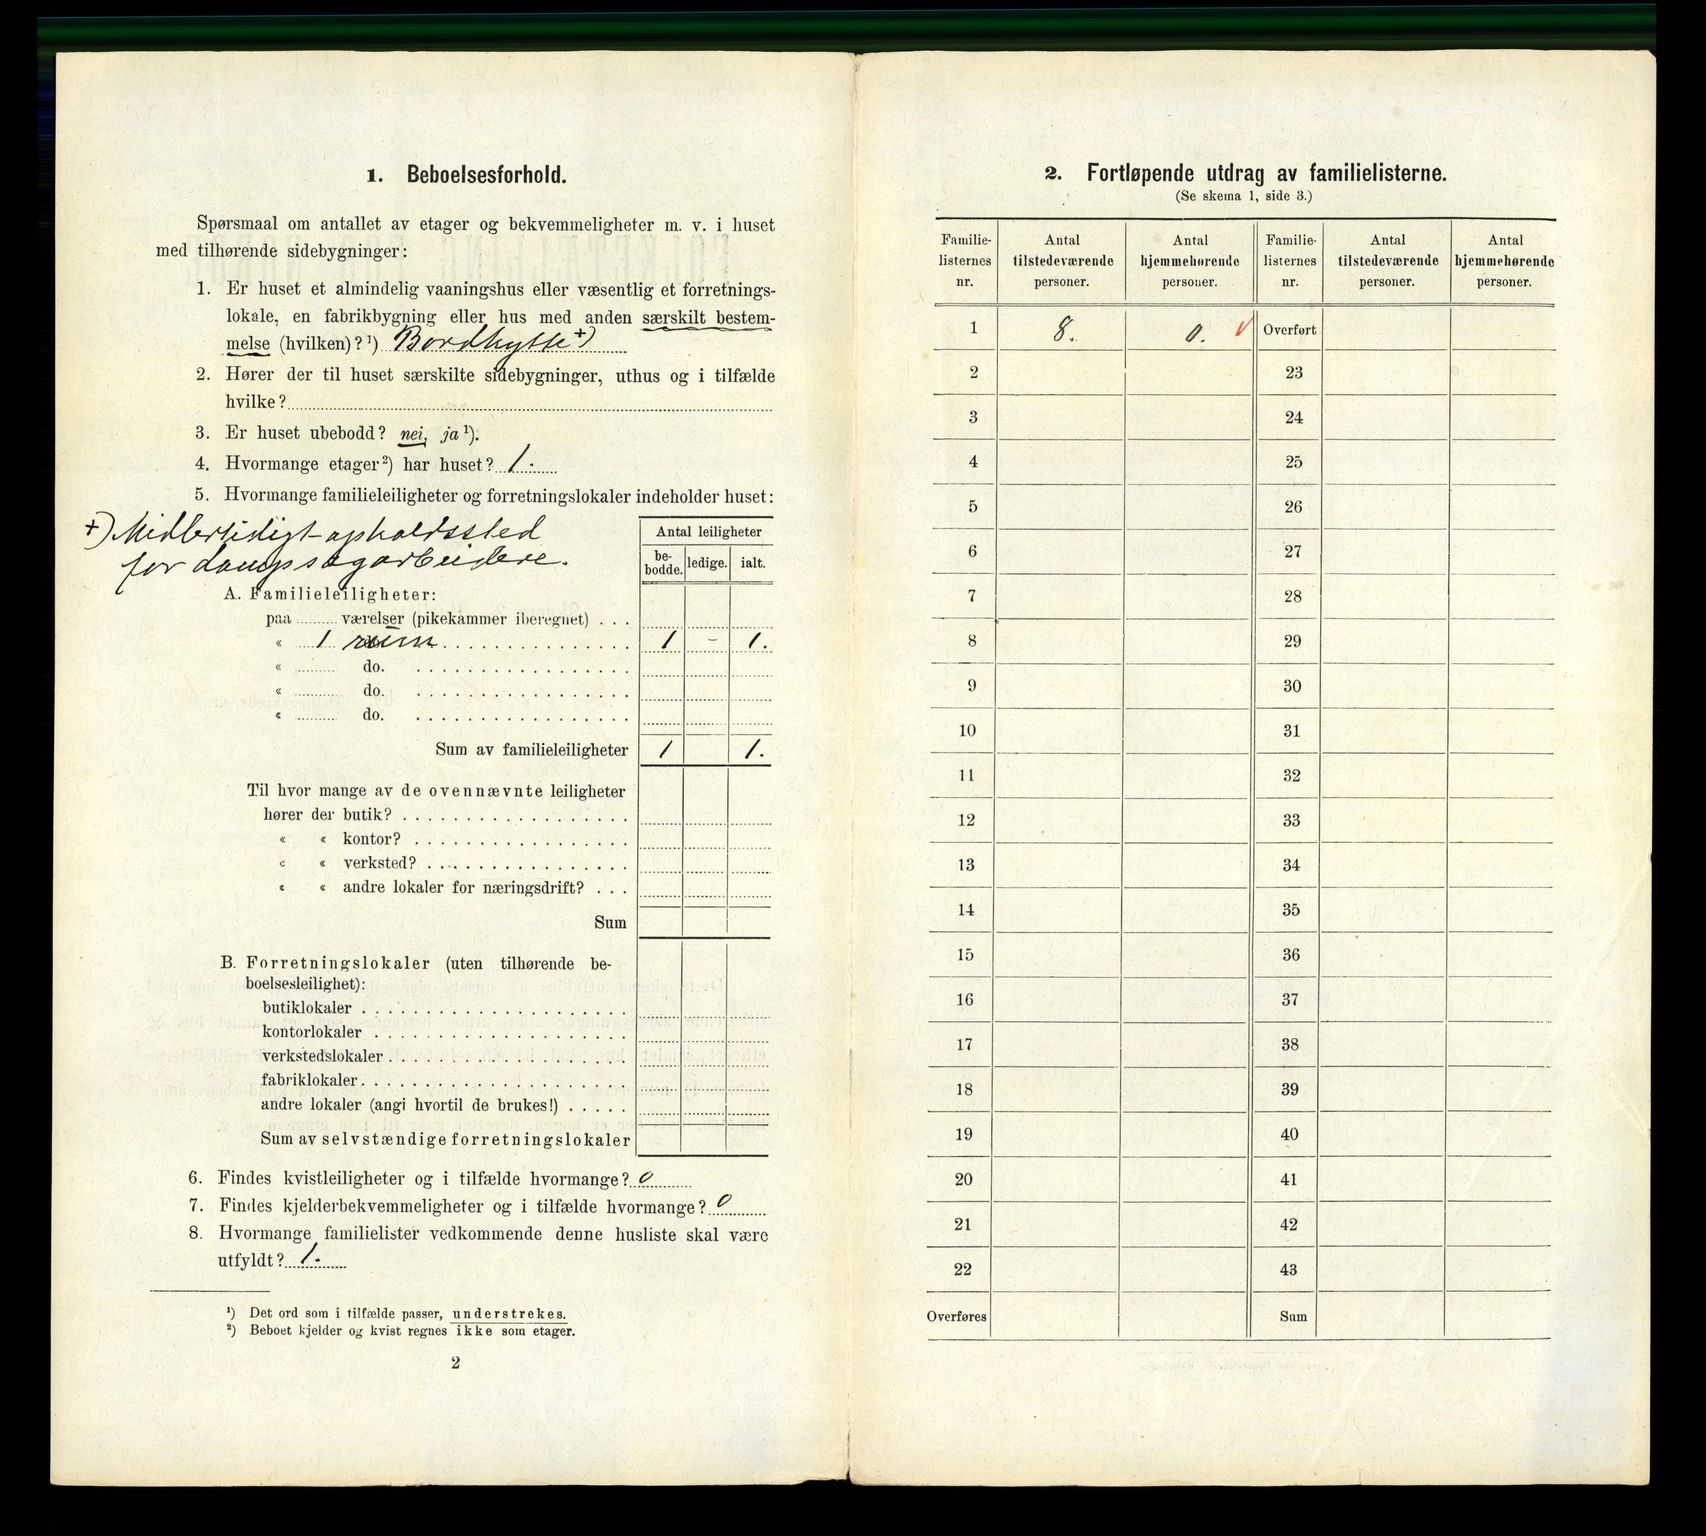 1. Beboelsesforhold.
Spørsmaal om antallet av etager og bekvemmeligheter m. v. i huset
med tilhørende sidebygninger:
1. Er huset et almindelig vaaningshus eller væsentlig et forretnings-
lokale, en fabrikbygning eller hus med anden særskilt bestem-
melse (hvilken)?¹) Bordhytte +)
2. Hører der til huset særskilte sidebygninger, uthus og i tilfælde
hvilke?
3. Er huset ubebodd? nei, ja¹).
4. Hvormange etager²) har huset? 1.
5. Hvormange familieleiligheter og forretningslokaler indeholder huset:
+) Midlertidigt opholdssted
for dampsagarbeidere.
Antal leiligheter
be-
bodde. ledige. ialt.
A. Familieleiligheter:
paa ........ værelser (pikekammer iberegnet) . . .
« 1 rum 1 - 1.
« ........ do.
« ........ do.
« ........ do.
Sum av familieleiligheter 1 1.
Til hvor mange av de ovennævnte leiligheter
hører der butik?
« « kontor?
« « verksted?
« « andre lokaler for næringsdrift? . . .
Sum
B. Forretningslokaler (uten tilhørende be-
boelsesleilighet):
butiklokaler
kontorlokaler
verkstedslokaler
fabriklokaler
andre lokaler (angi hvortil de brukes!)
Sum av selvstændige forretningslokaler
6. Findes kvistleiligheter og i tilfælde hvormange? 0
7. Findes kjelderbekvemmeligheter og i tilfælde hvormange? 0
8. Hvormange familielister vedkommende denne husliste skal være
utfyldt? 1.
¹) Det ord som i tilfælde passer, understrekes.
²) Beboet kjelder og kvist regnes ikke som etager.
2
2. Fortløpende utdrag av familielisterne.
(Se skema 1, side 3.)
Familie-
listernes
nr. Antal
tilstedeværende
personer. Antal
hjemmehørende
personer. Familie-
listernes
nr. Antal
tilstedeværende
personer. Antal
hjemmehørende
personer.
1 8. 0. V Overført
2 23
3 24
4 25
5 26
6 27
7 28
8 29
9 30
10 31
11 32
12 33
13 34
14 35
15 36
16 37
17 38
18 39
19 40
20 41
21 42
22 43
Overføres Sum